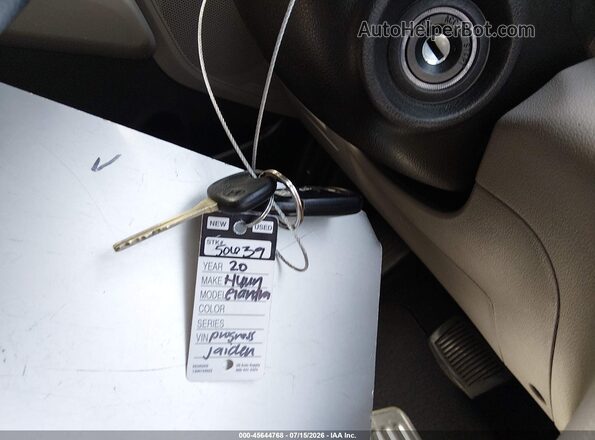 AutoHelperBot.com
NEW USED
STK# 50639
YEAR 20
MAKE Hyun
MODEL elantra
COLOR
SERIES
VIN progress
Jaiden
000-45644768 - 07/15/2026 - IAA Inc.